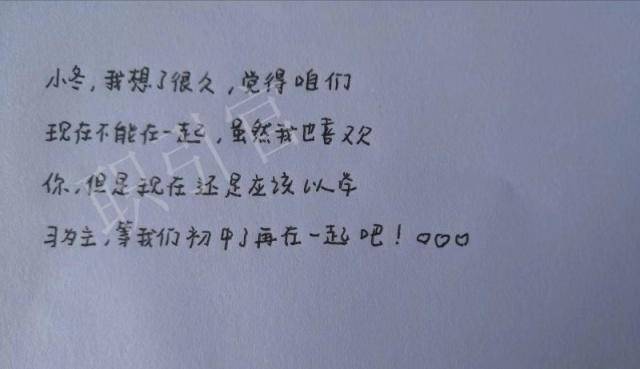 小冬，我想了很久，觉得咱们
现在不能在一起，虽然我也喜欢
你，但是现在还是应该以学
习为主，等我们初中了再在一起吧！♡♡♡
职引官